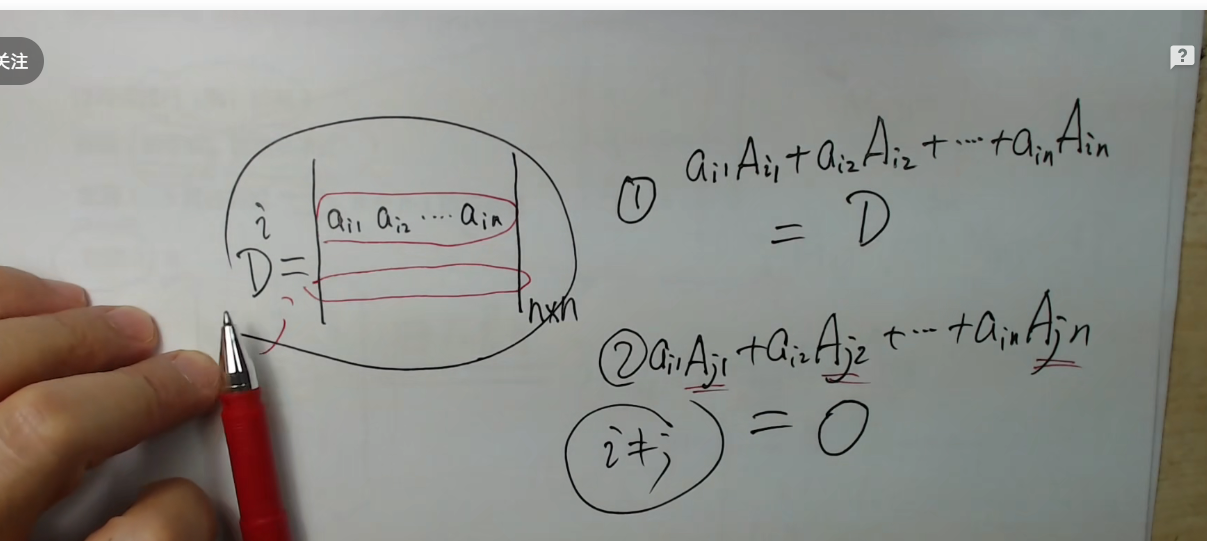 关注
?
i
D = | a_{i1} a_{i2} ⋯ a_{in} |_{n×n}
j
① a_{i1}A_{i1} + a_{i2}A_{i2} + ⋯ + a_{in}A_{in}
= D
② a_{i1}A_{j1} + a_{i2}A_{j2} + ⋯ + a_{in}A_{jn}
i≠j = 0